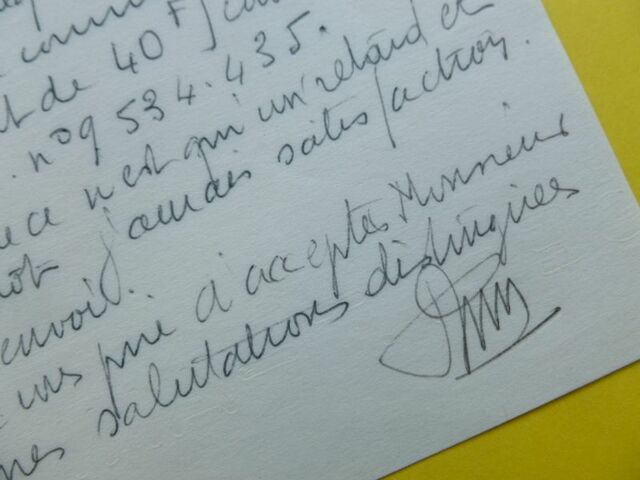 de 40F
n° 9 534.435.
ce n'est qu'un retard et
jamais satisfaction.
envoi.
prie d'accepter Monsieur
mes salutations distinguées